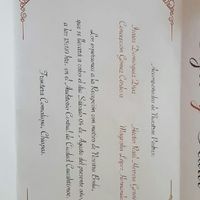 Acompañados de Nuestros Padres
Isaias Dominguez Diaz
Concepción Gómez Cordova
Héctor Raúl Moreno
Magnolia López Hernández
Los esperamos a la Recepción con motivo de Nuestra Boda,
que se llevará a cabo el día Sábado 04 de Agosto del presente año,
a las 15:00 hrs. en el Auditorio Central de Ciudad Cuauhtémoc,
Frontera Comalapa, Chiapas.